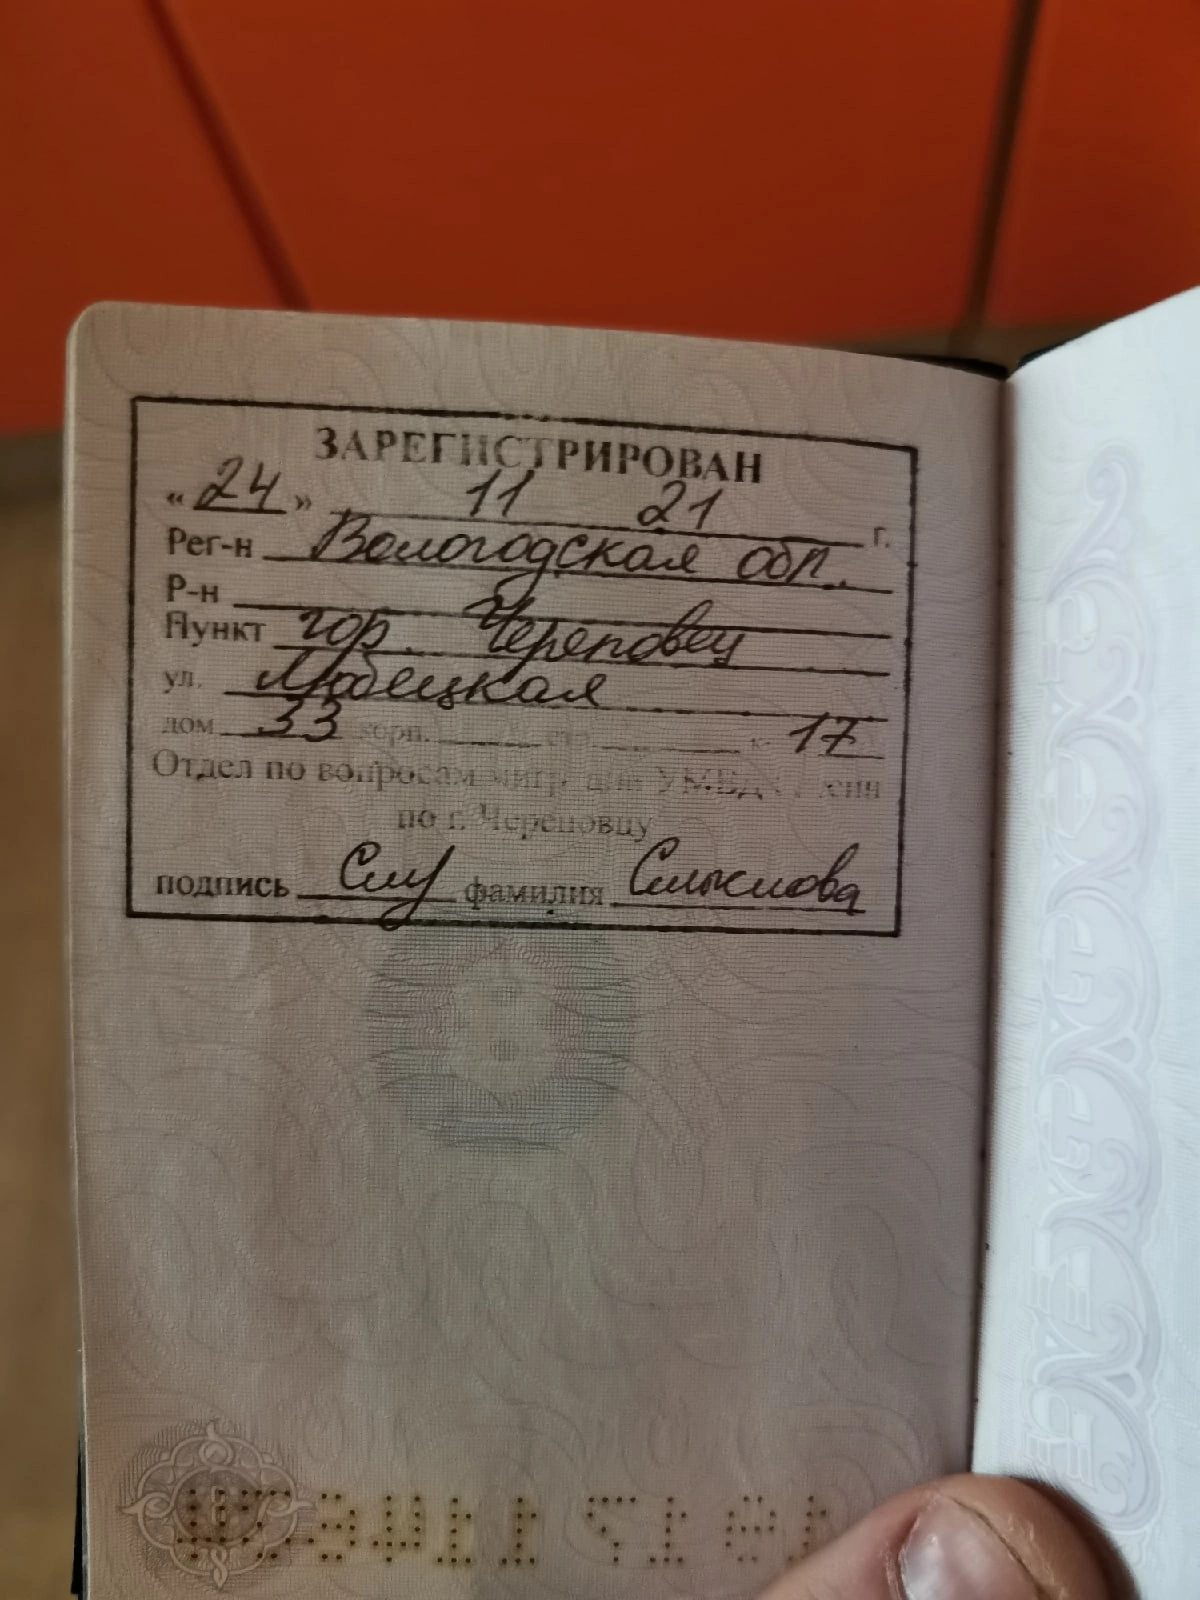 ЗАРЕГИСТРИРОВАН
«24» 11 21 г.
Рег-н Вологодская обл.
Р-н
Пункт гор. Череповец
ул. Любецкая
дом 33 корп. стр. к. 17
Отдел по вопросам миграции УМВД России
по г. Череповцу
подпись фамилия Смыслова